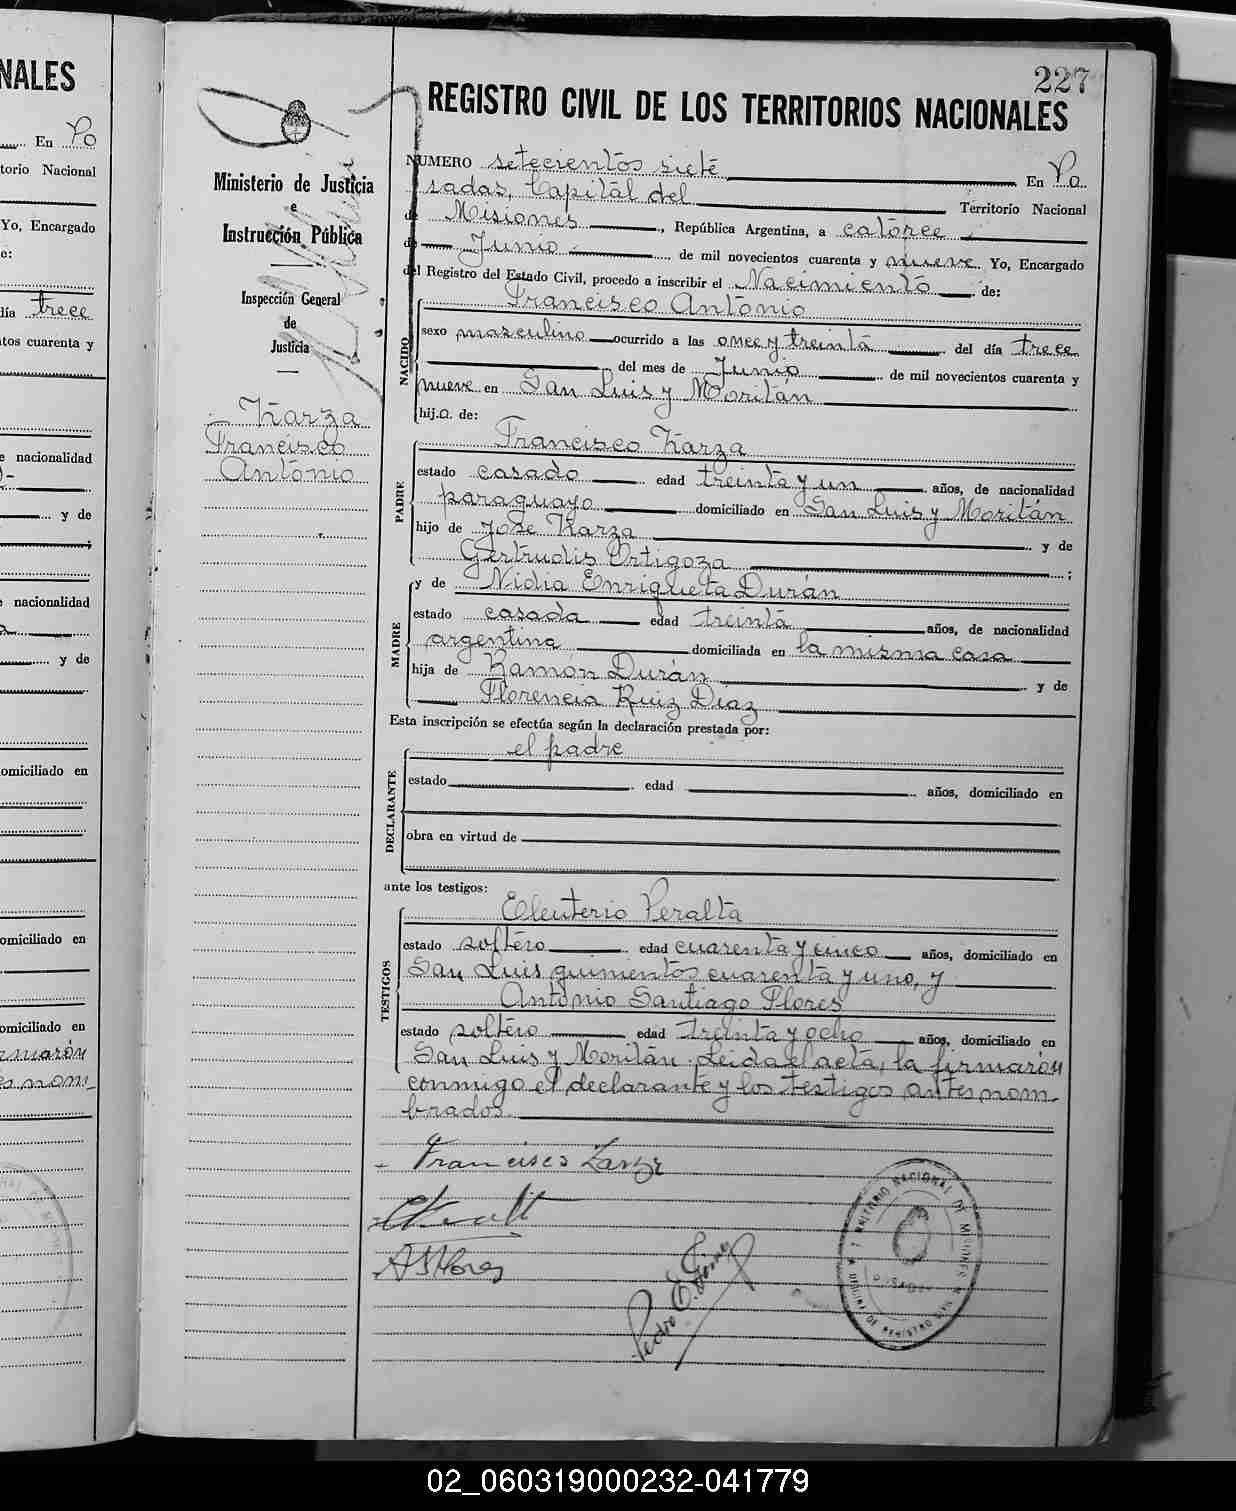 NALES
En Po
torio Nacional
Yo, Encargado
e:
día trece
tos cuarenta y
e nacionalidad
y de
e nacionalidad
y de
omiciliado en
omiciliado en
omiciliado en
227
REGISTRO CIVIL DE LOS TERRITORIOS NACIONALES
Ministerio de Justicia
e
Instrucción Pública
Inspección General
de
Justicia
Karza
Francisco
Antonio
NUMERO setecientos siete En Po
sadas, Capital del Territorio Nacional
de Misiones, República Argentina, a catorce
de Junio de mil novecientos cuarenta y nueve Yo, Encargado
del Registro del Estado Civil, procedo a inscribir el Nacimiento de:
NACIDO
Francisco Antonio
sexo masculino ocurrido a las once y treinta del día trece
del mes de Junio de mil novecientos cuarenta y
nueve en San Luis y Moritán
hij.o. de:
PADRE
Francisco Karza
estado casado edad treinta y un años, de nacionalidad
paraguayo domiciliado en San Luis y Moritán
hijo de José Karza y de
Gertrudis Ortigoza;
MADRE
y de Nidia Enriqueta Durán
estado casada edad treinta años, de nacionalidad
argentina domiciliada en la misma casa
hija de Ramón Durán y de
Florencia Ruiz Díaz
Esta inscripción se efectúa según la declaración prestada por:
DECLARANTE
el padre
estado edad años, domiciliado en
obra en virtud de
ante los testigos:
TESTIGOS
Eleuterio Peralta
estado soltero edad cuarenta y cinco años, domiciliado en
San Luis quinientos cuarenta y uno, y
Antonio Santiago Flores
estado soltero edad treinta y ocho años, domiciliado en
San Luis y Moritán. Leida el acta, la firmarón
conmigo el declarante y los testigos antes nom
brados.
Francisco Zarza
ASFlores
Pedro E. Gimenez
TERRITORIO NACIONAL DE MISIONES
POSADAS
02_060319000232-041779